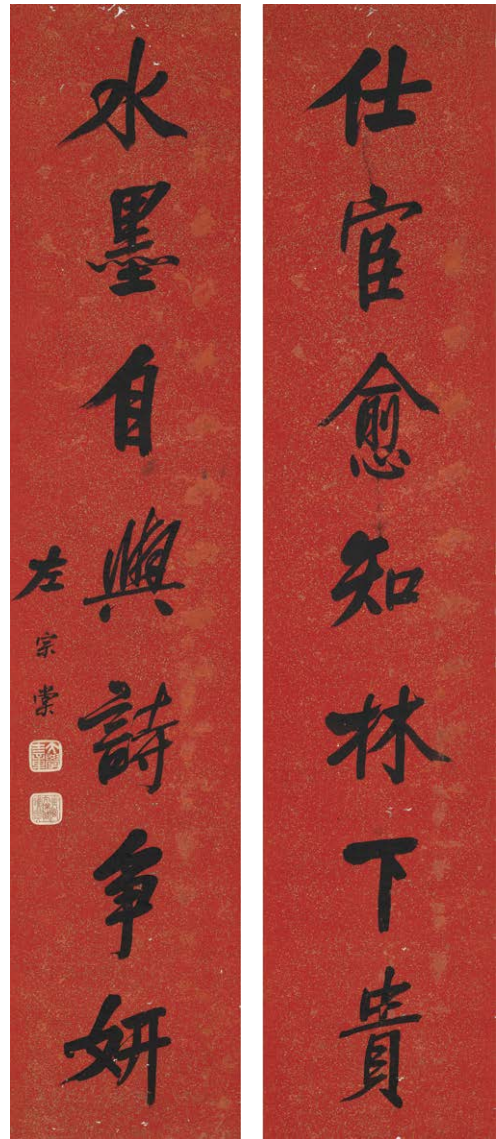 仕宦愈知林下貴
水墨自與詩爭妍
左宗棠